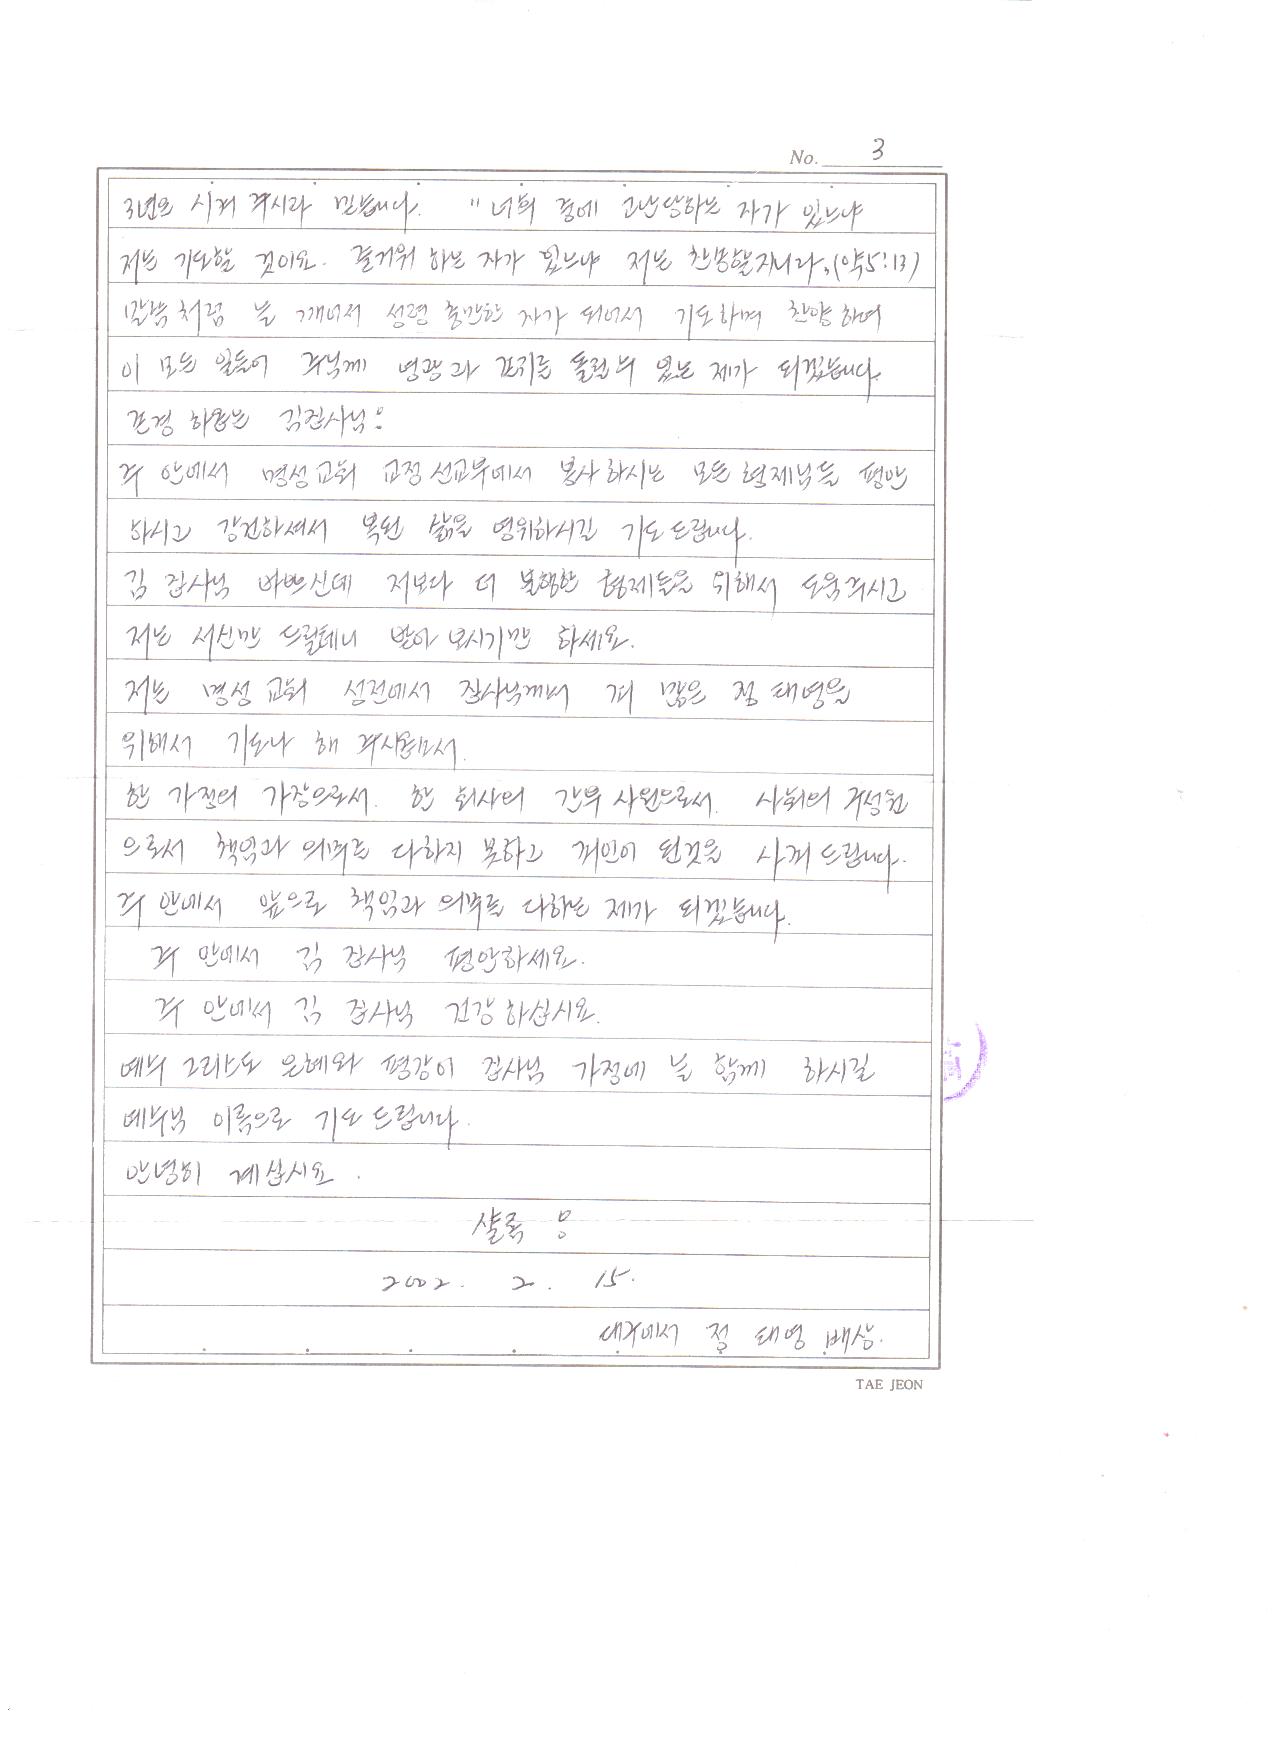 No. 3
3년으로 시켜 주시라 믿습니다. "너희 중에 고난당하는 자가 있느냐
저는 기도할 것이요. 즐거워 하는 자가 있느냐 저는 찬송할지니라,(약5:13)
말씀처럼 늘 깨어서 성령 충만한 자가 되어서 기도하며 찬양하여
이 모든 일들이 주님께 영광과 존귀를 돌릴 수 있는 제가 되겠습니다.
존경 하옵는 김집사님!
주 안에서 명성교회 교정 선교부에서 봉사하시는 모든 형제님들 평안
하시고 강건하셔서 복된 삶을 영위하시길 기도드립니다.
김 집사님 바쁘신데 저보다 더 불행한 형제들을 위해서 도움주시고
저는 서신만 드릴테니 받아 보시기만 하세요.
저는 명성교회 성전에서 집사님께서 죄 많은 정태영을
위해서 기도나 해 주시옵소서.
한 가정의 가장으로서. 한 회사의 간부 사원으로서. 사회의 구성원
으로서 책임과 의무를 다하지 못하고 죄인이 된것을 사죄드립니다.
주 안에서 앞으로 책임과 의무를 다하는 제가 되겠습니다.
주 안에서 김 집사님 평안하세요.
주 안에서 김 집사님 건강하십시요.
예수 그리스도 은혜와 평강이 집사님 가정에 늘 함께 하시길
예수님 이름으로 기도드립니다.
안녕히 계십시요.
샬롬!
2002. 2. 15.
대구에서 정태영 배상.
TAE JEON